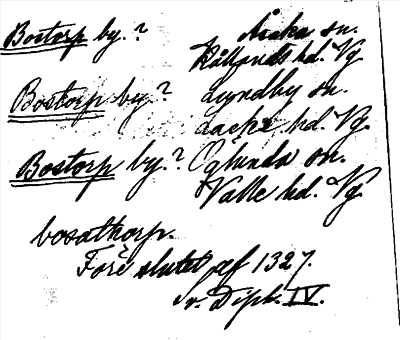 Bostorp by.? Åska sn.
Kållands hd. Vg.
Bostorp by.? Lundby sn.
Laske hd. Vg.
Bostorp by.? Öglunda sn.
Valle hd. Vg.
bosathorp.
Före slutet af 1327.
sv. Dipl. IV.